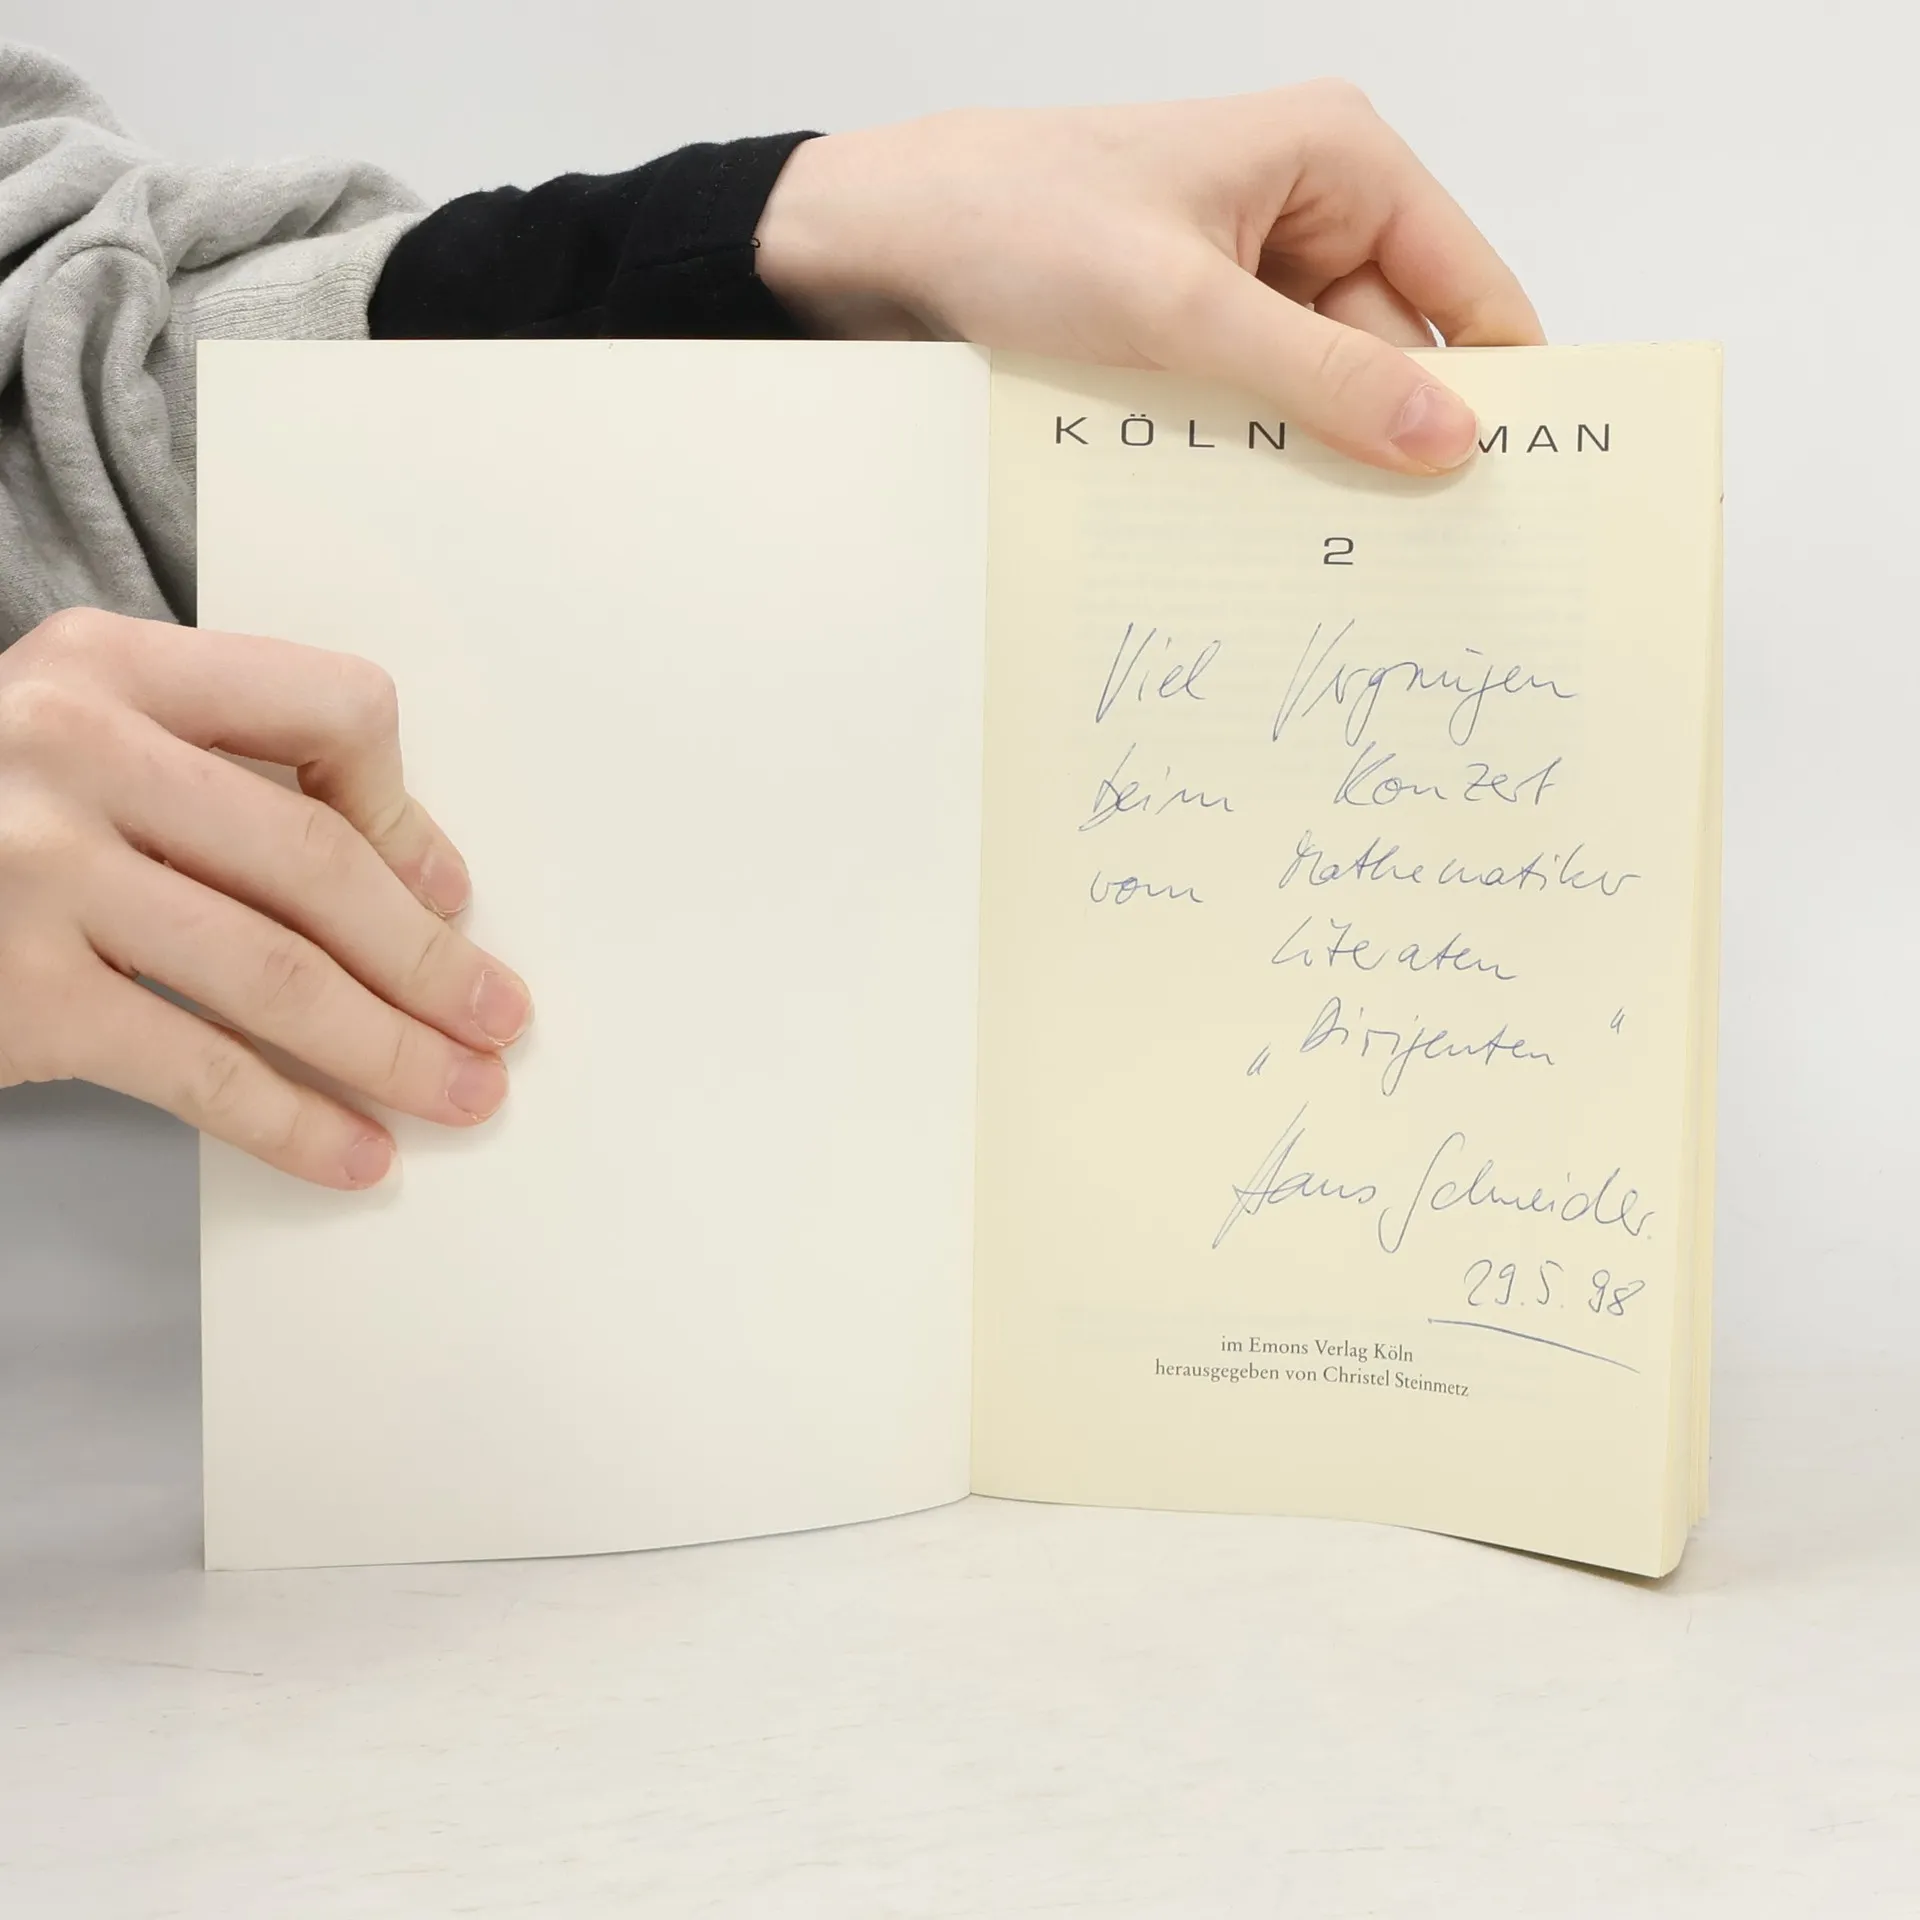 KÖLN MAN
2
Viel Vergnügen
beim Konzert
vom Mathematiker
Literaten
„Dirigenten“
Hans Schneider.
29.5.98
im Emons Verlag Köln
herausgegeben von Christel Steinmetz